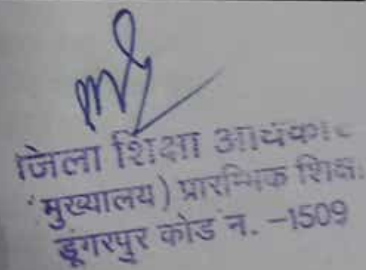 जिला शिक्षा अधिकार
(मुख्यालय) प्रारम्भिक शिक्षा
डूंगरपुर कोड न. -1509